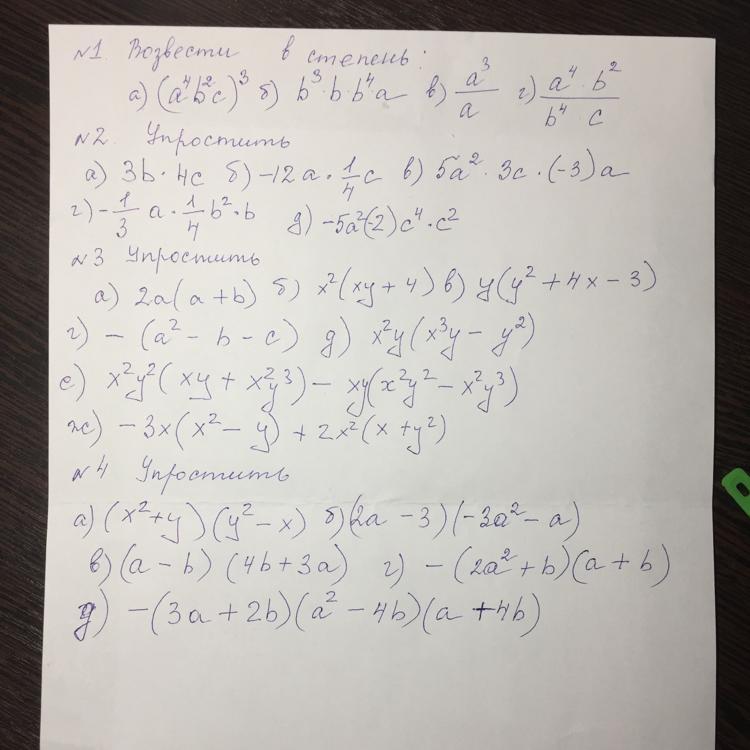 №1. Возвести в степень:
а) (a⁴b²c)³ б) b³·b·b⁴·a в) a³/a г) a⁴·b²/b⁴ c
№2. Упростить
а) 3b·4c б) -12a·1/4c в) 5a²·3c·(-3)a
г) -1/3 a·1/4 b²·b д) -5a²(-2)c⁴·c²
№3 Упростить
а) 2a(a+b) б) x²(xy+4) в) y(y²+4x-3)
г) -(a²-b-c) д) x²y(x³y-y²)
е) x²y²(xy+x²y³)-xy(x²y²-x²y³)
ж) -3x(x²-y)+2x²(x+y²)
№4 Упростить
а) (x²+y)(y²-x) б) (2a-3)(-3a²-a)
в) (a-b)(4b+3a) г) -(2a²+b)(a+b)
д) -(3a+2b)(a²-4b)(a+4b)